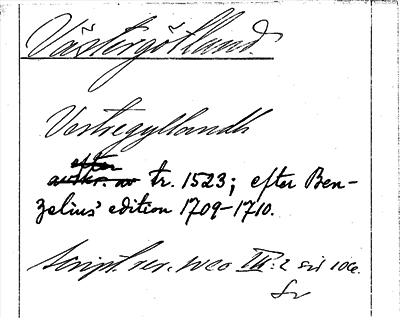 Västergötland.
Vestregyllandh
efter
tr. 1523; efter Ben-
zelius' edition 1709-1710.
Script. rer. sveo III:2 sid 106.